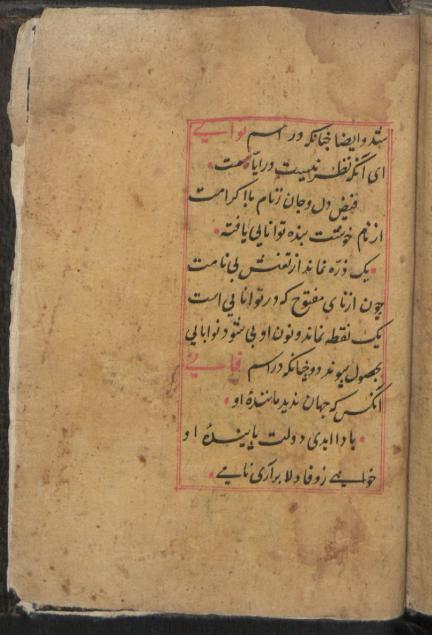 شد و ایضا چنانکه در اسم نوایی
ای آنکه نظر نیست در ایامت
فیض دل و جان ز نام با اکرامت
از نام خوشت بنده توانایی یافته
یک ذره نماند از تعنش بی نامت
چون از تای مفتوح که در توانایی است
یک نقطه نماند و نون او بی شود نوایایی
بحصول پیوندد و چنانکه در اسم
آنکس که جهان ندید مانندهٔ او
بادا ابدی دولت پایندهٔ او
خواهی ز وفا دلا برآری نامی